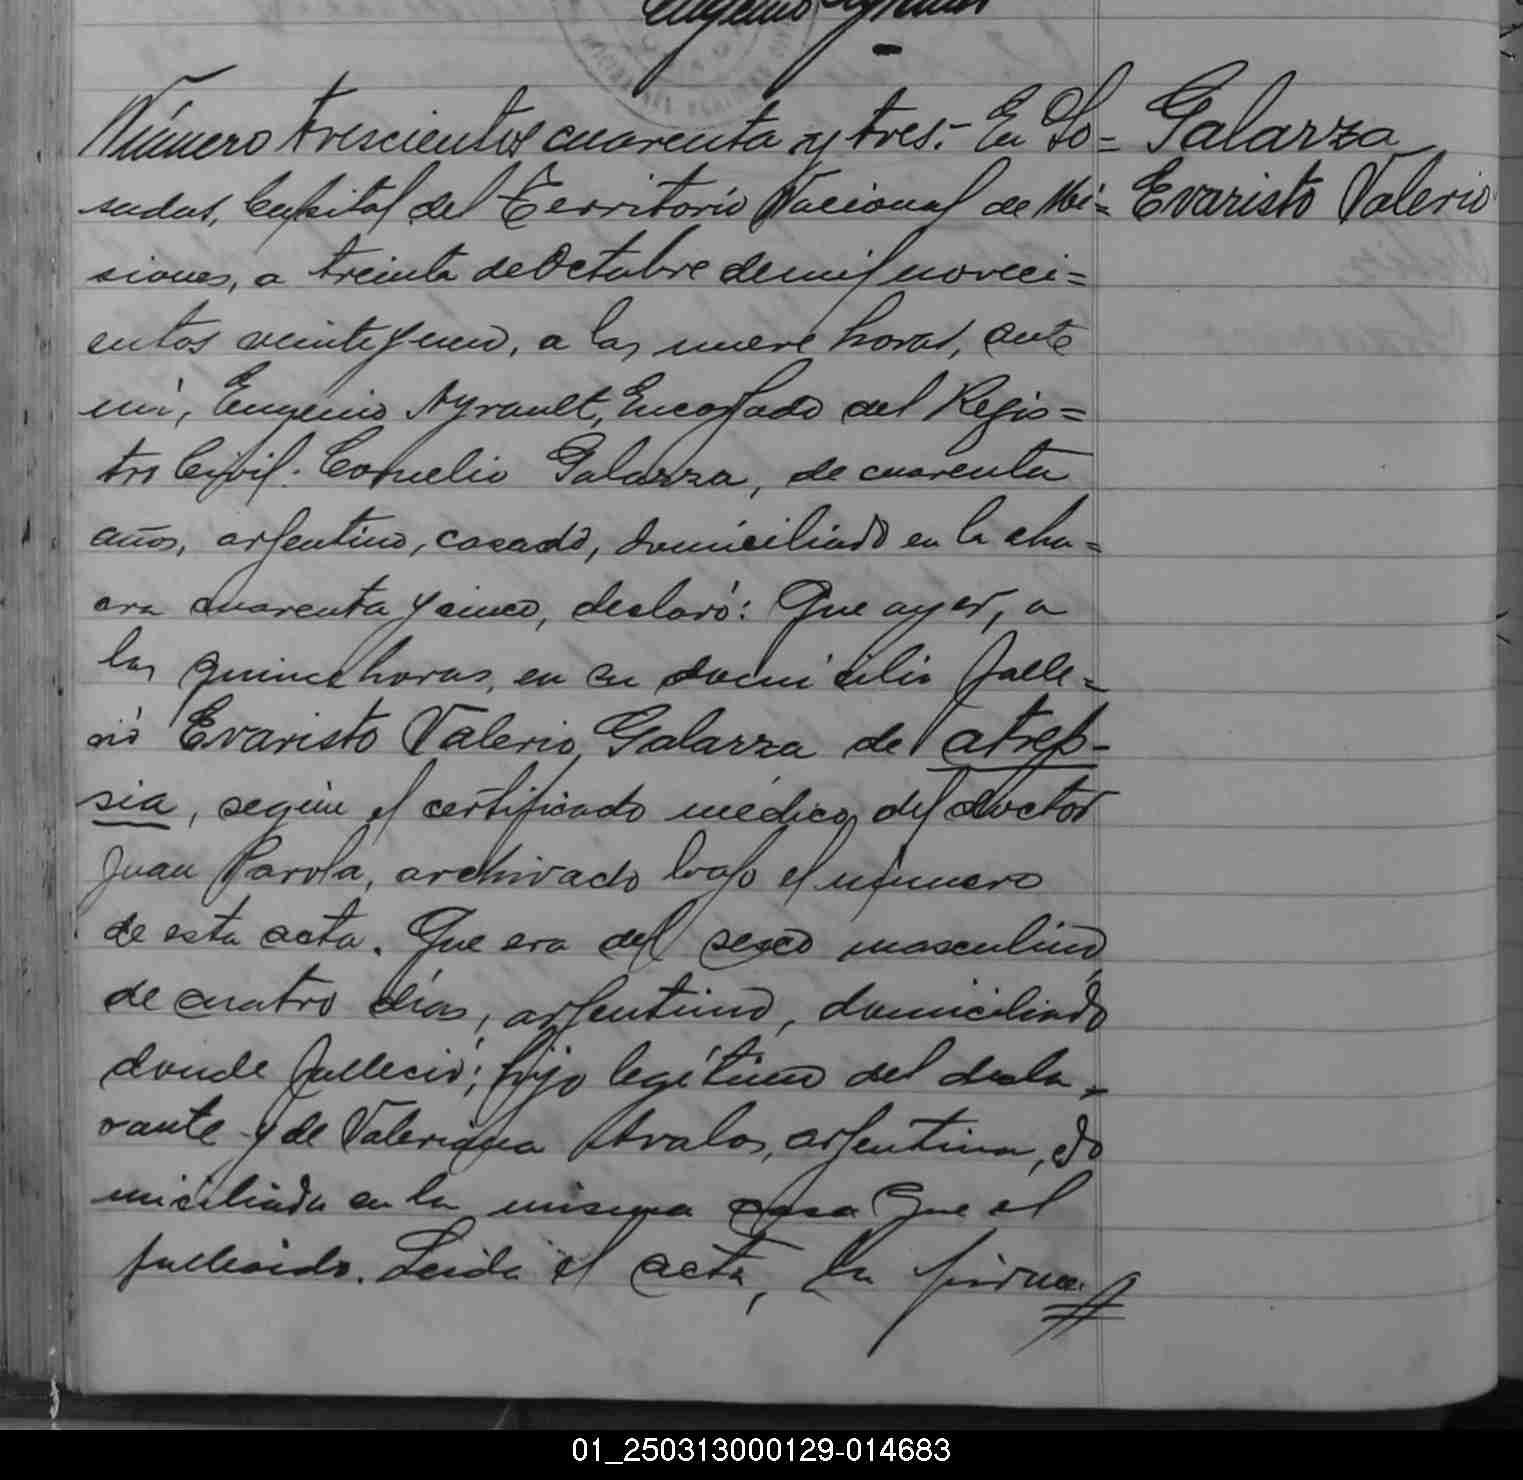 Eugenio Ayrault
Número trescientos cuarenta y tres.- En Po= Galarza
sadas, Capital del Territorio Nacional de Mi= Evaristo Valerio
siones, a treinta de Octubre de mil noveci=
entos veinte y uno, a las nueve horas, ante
mí, Eugenio Ayrault, Encargado del Regis=
tro Civil: Cornelio Galarza, de cuarenta
años, argentino, casado, domiciliado en la cha=
cra cuarenta y cinco, declaró: Que ayer, a
las quince horas, en su domicilio falle=
ció Evaristo Valerio Galarza de atrep-
sia, según el certificado médico del doctor
Juan Parola, archivado bajo el número
de esta acta. Que era del sexo masculino,
de cuatro días, argentino, domiciliado
donde falleció; hijo legítimo del decla=
rante y de Valeriana Avalos, argentina, do
miciliada en la misma casa que el
fallecido. Leida el acta, la firma
01_250313000129-014683